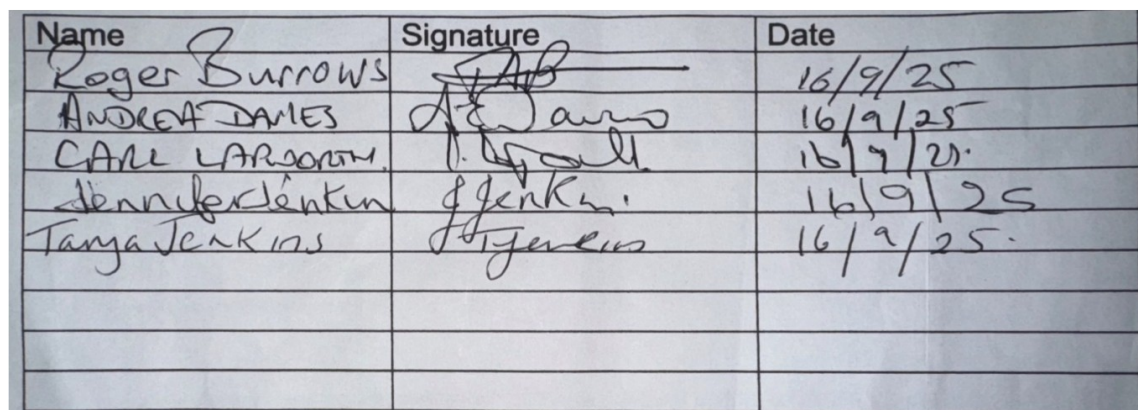 Name Signature Date
Roger Burrows 16/9/25
ANDREA DAMES 16/9/25
CARL 16/9/25.
Jennifer Jenkin J Jenkin. 16/9/25
Tanya Jenkins T Jenkins 16/9/25.